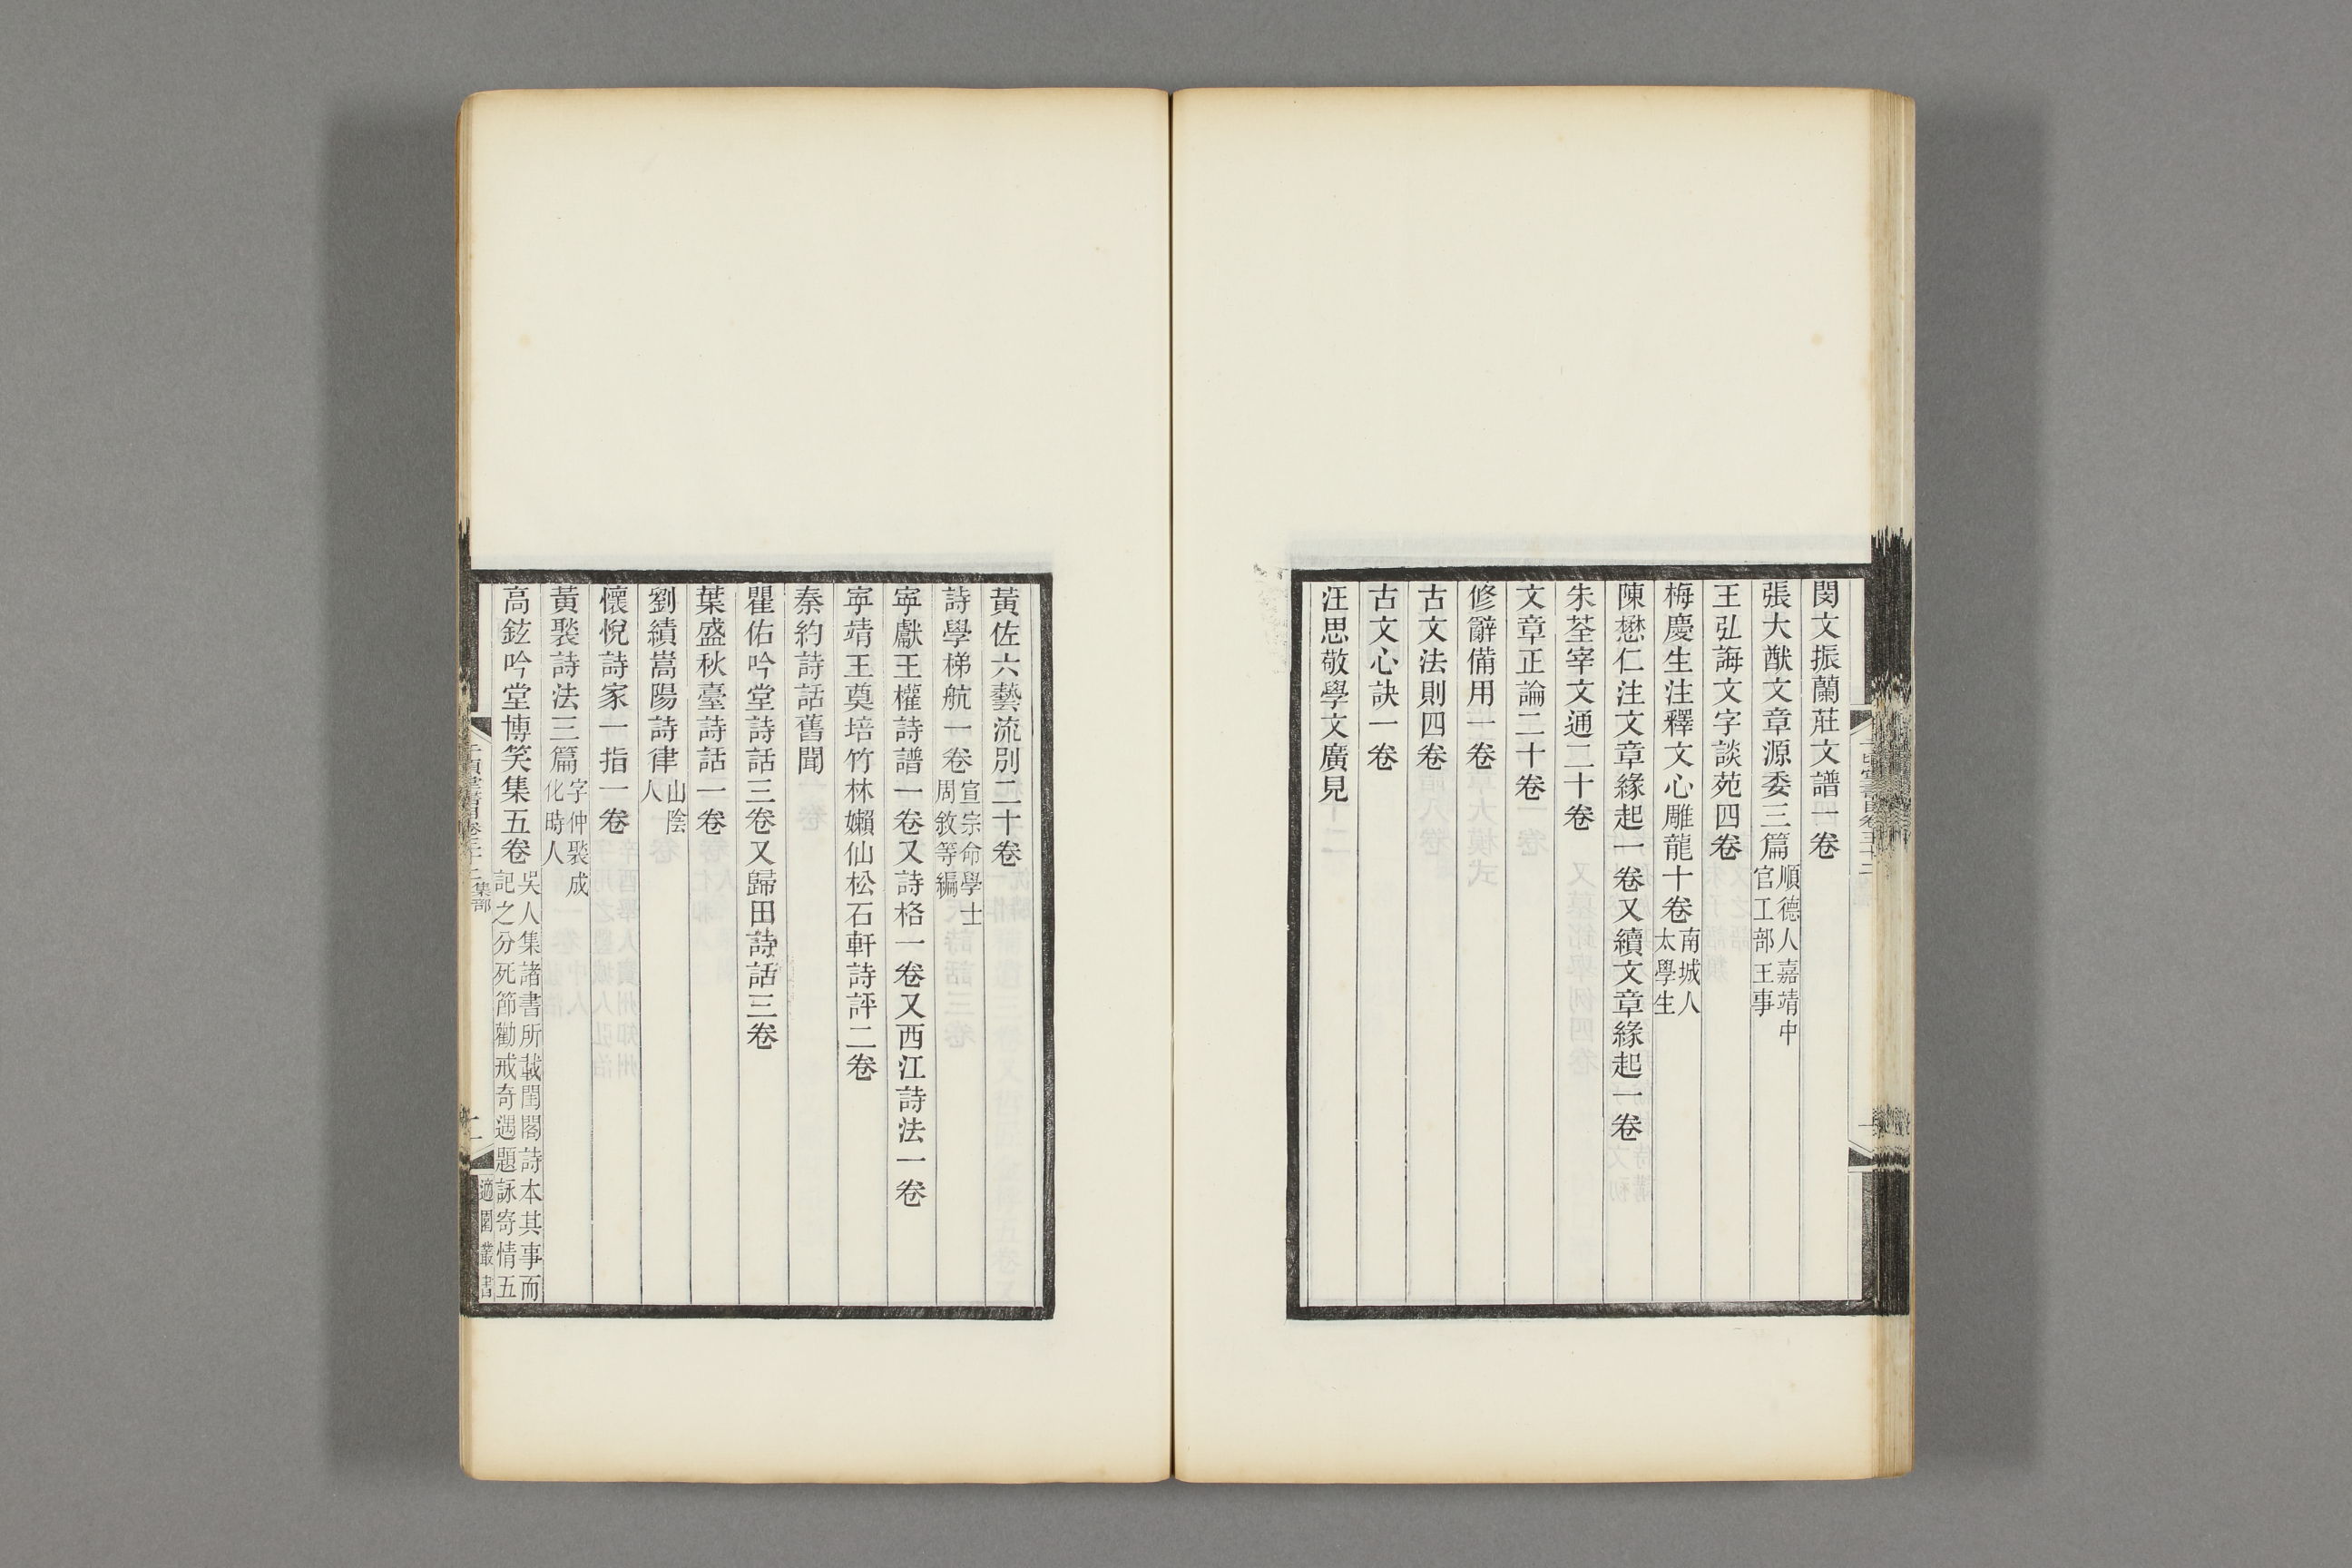 閔文振蘭莊文譜一卷
張大猷文章源委三篇順德人嘉靖中官工部王事
王弘誨文字談苑四卷
梅慶生注釋文心雕龍十卷南城人太學生
陳懋仁注文章緣起一卷又續文章緣起一卷
朱荃宰文通二十卷
文章正論二十卷
修辭備用一卷
古文法則四卷
古文心訣一卷
汪思敬學文廣見
黃佐六藝流別二十卷
詩學梯航一卷宣宗命學士周敘等編
寧獻王權詩譜一卷又詩格一卷又西江詩法一卷
寧靖王奠培竹林嬾仙松石軒詩評二卷
秦約詩話舊聞
瞿佑吟堂詩話三卷又歸田詩話三卷
葉盛秋臺詩話一卷
劉績嵩陽詩律山陰人
懷悅詩家一指一卷
黃褧詩法三篇字仲褧成化時人
高鉉吟堂博笑集五卷吳人集諸書所載閨閣詩本其事而記之分死節勸戒奇遇題詠寄情五
千頃堂書目卷三十二 集部
二
適園叢書